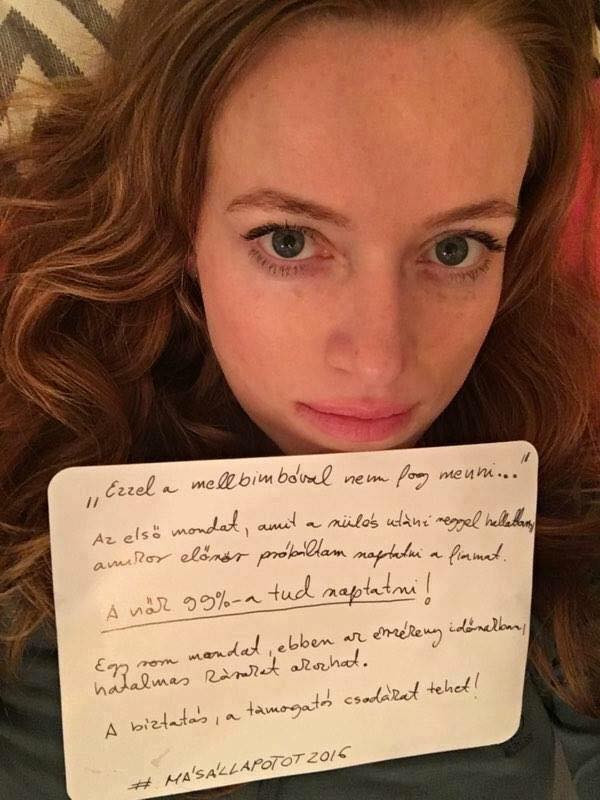 „Ezzel a mellbimbóval nem fog menni..."
Az első mondat, amit a szülés utáni reggel hallottam,
amikor először próbáltam szoptatni a fiamat.
A nők 99%-a tud szoptatni!
Egy rossz mondat, ebben az érzékeny időszakban,
hatalmas károkat okozhat.
A biztatás, a támogatás csodákat tehet!
# MÁSÁLLAPOTOT2016